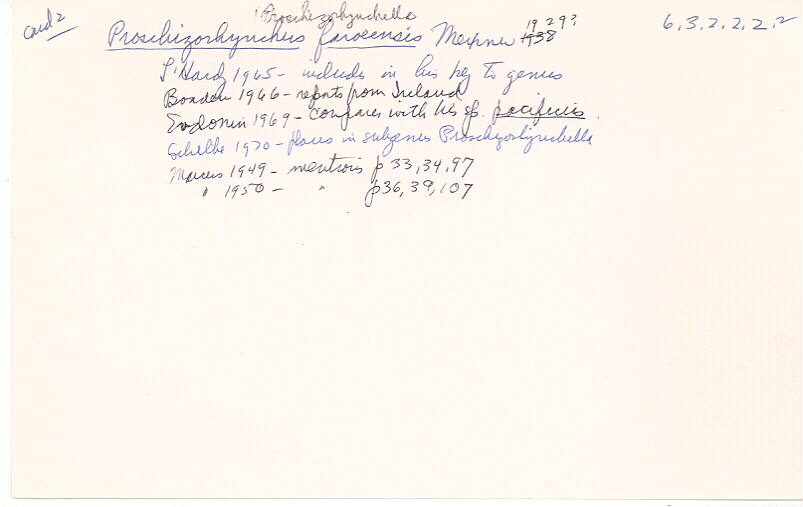 Card 2
Proschizorhynchella
Proschizorhynchus faroensis Meixner 1938 1929?
6.3.2.2.2.2
L'Hardy 1965 - includes in his key to genus
Boaden 1966 - reports from Ireland
Evdonin 1969 - compares with his sp. pacificus.
Schilke 1970 - places in subgenus Proschizorhynchella
Marcus 1949 - mentions p 33, 34, 97
" 1950 - " p 36, 39, 107